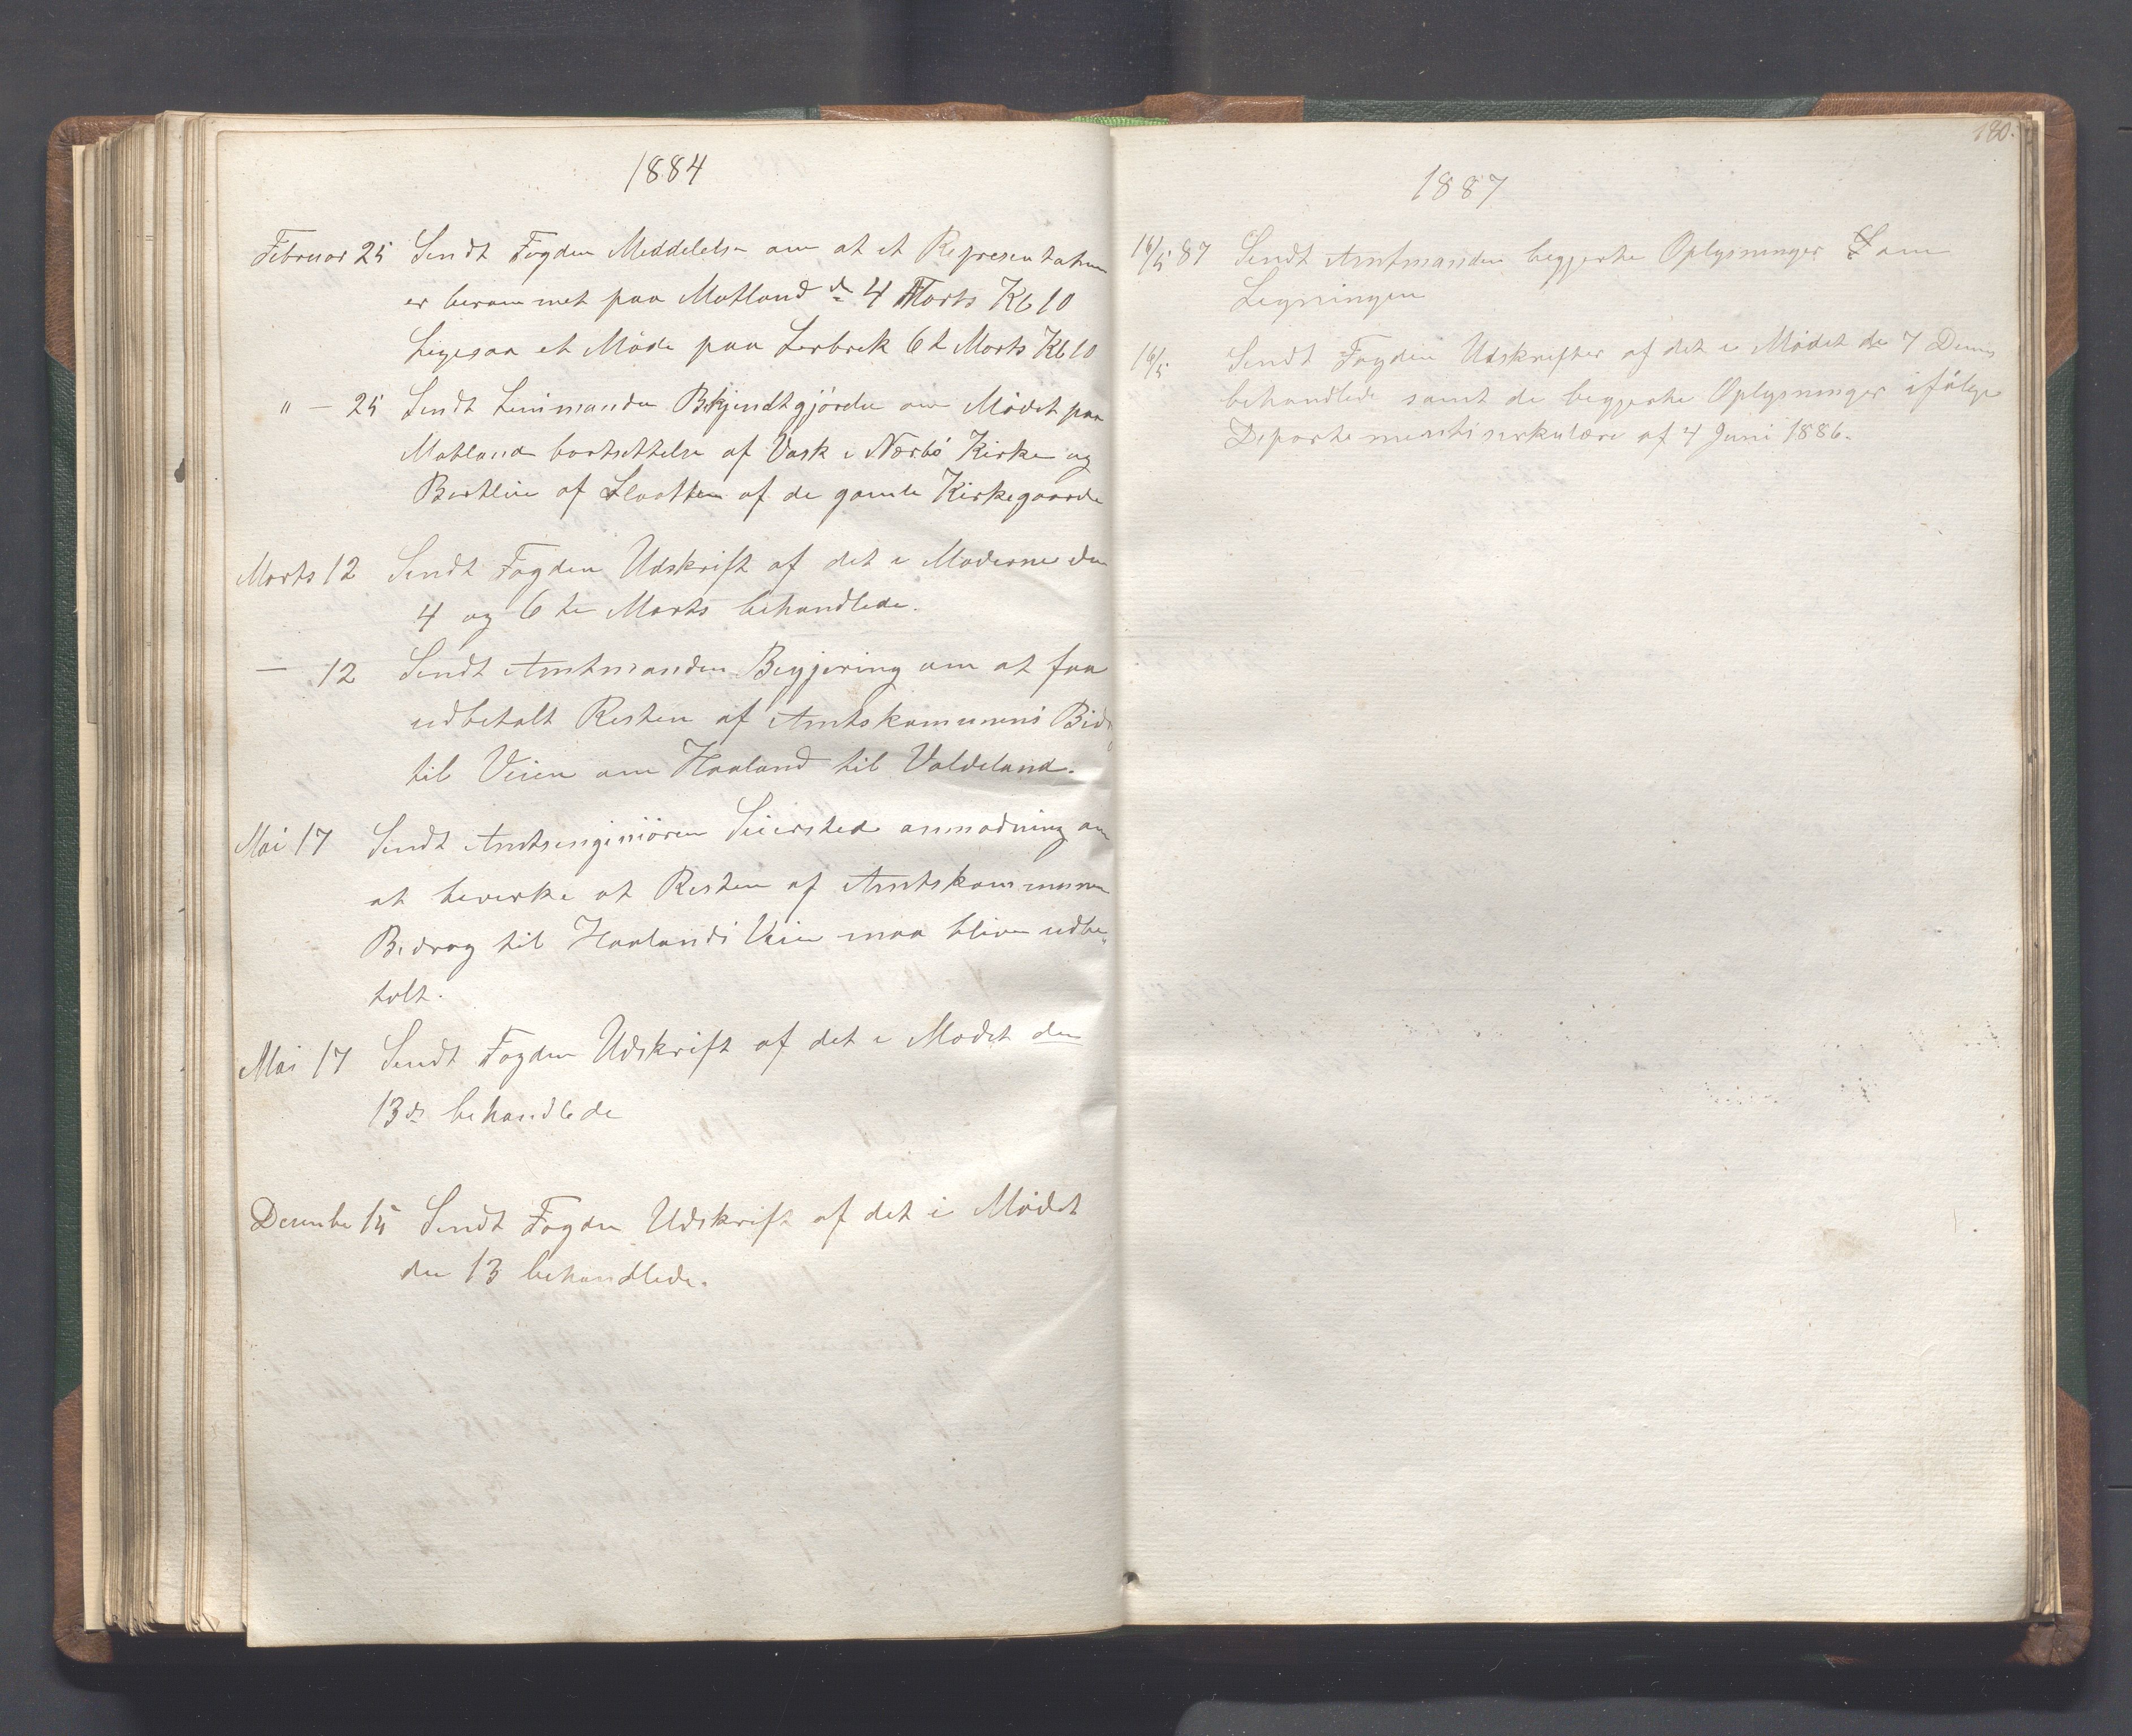 1884
Februar 25 Sendt Fogden Meddelelse om at et Representatum
er berammet paa Motland d 4 Marts Kl 10
Ligesaa et Møde paa Lerbrek 6t Marts Kl 10
" — 25 Sendt Lensmanden Bekjendtgjørelse om Mødet paa
Motland bortsettelse af Vask i Nærbø Kirke og
af Slaatten af de gamle Kirkegaarde
Marts 12 Sendt Fogden Udskrift af det i Møderne den
4 og 6te Marts behandlede.
— 12 Sendt Amtmanden Begjering om at faa
udbetalt Resten af Amtskomunens Bidr
til Veien om Haaland til Valdeland.
Mai 17 Sendt Amtsingeniøren Seiersted anmodning om
at bevirke at Resten af Amtskommunen
Bidrag til Haalands Veien maa blive udbe,
talt.
Mai 17 Sendt Fogden Udskrift af det i Mødet den
13de behandlede
Desember 15 Sendt Fogden Udskrift af det i Mødet
den 13 behandlede.
180.
1887
16/5 87 Sendt Amtmanden begjerte Oplysninger om
Ligningen
16/5 Sendt Fogden Udskrifter af det i Mødet de 7 Dennes
behandlede samt de begjerte Oplysninger ifølge
Departementscirkulære af 4 Juni 1886.